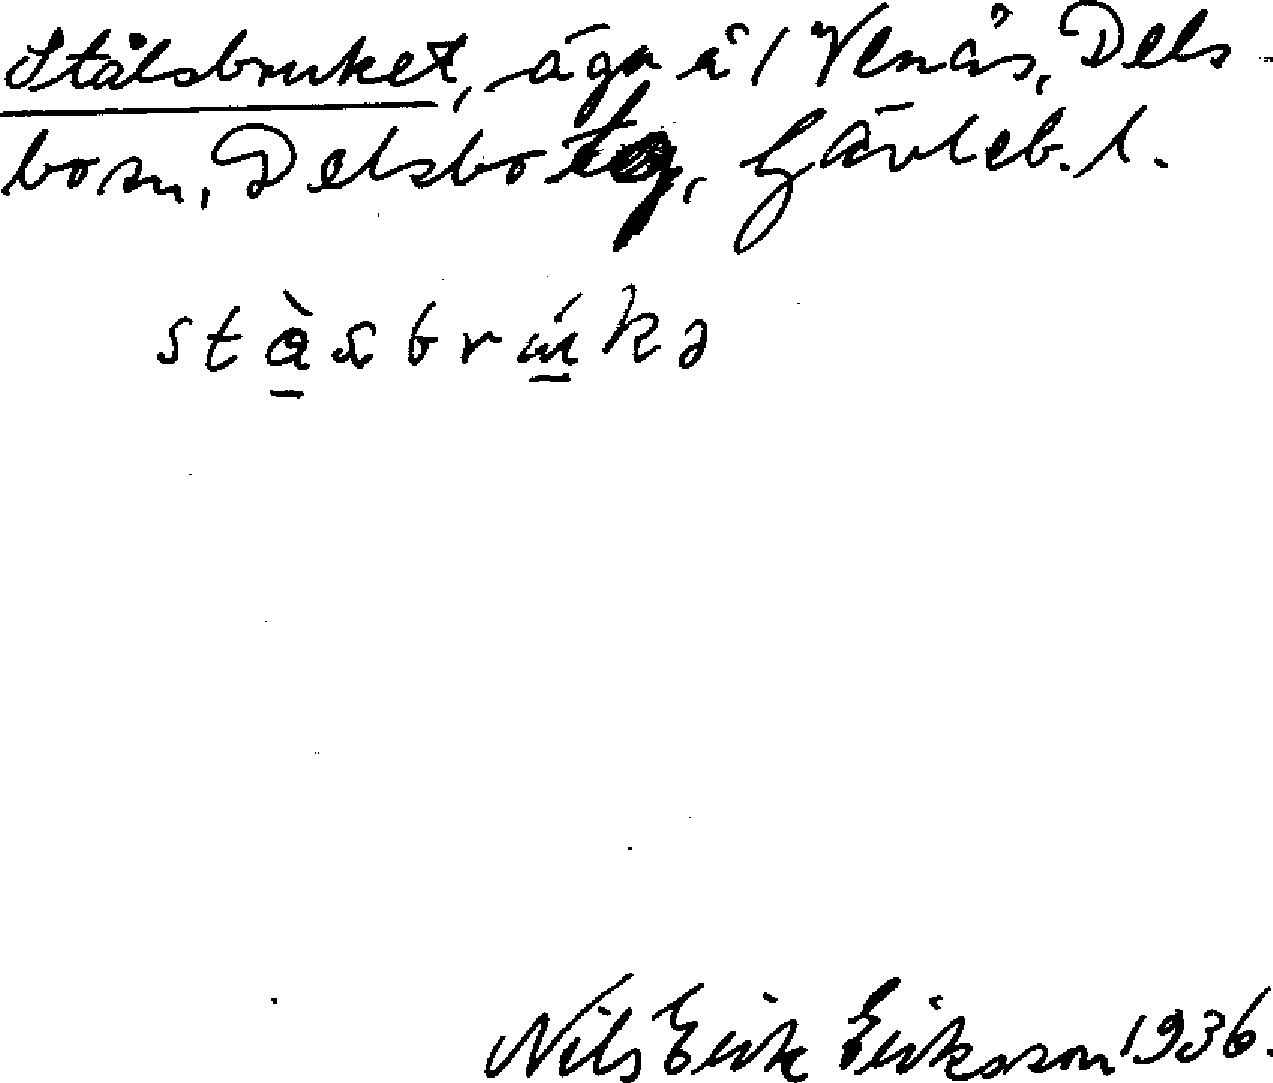 Stålsbruket, äga å 1 Venås, Dels-
bo sn, Delsbo tg, Gävleb. l.
stàsbrúkə
Nils Erik Eriksson 1936.